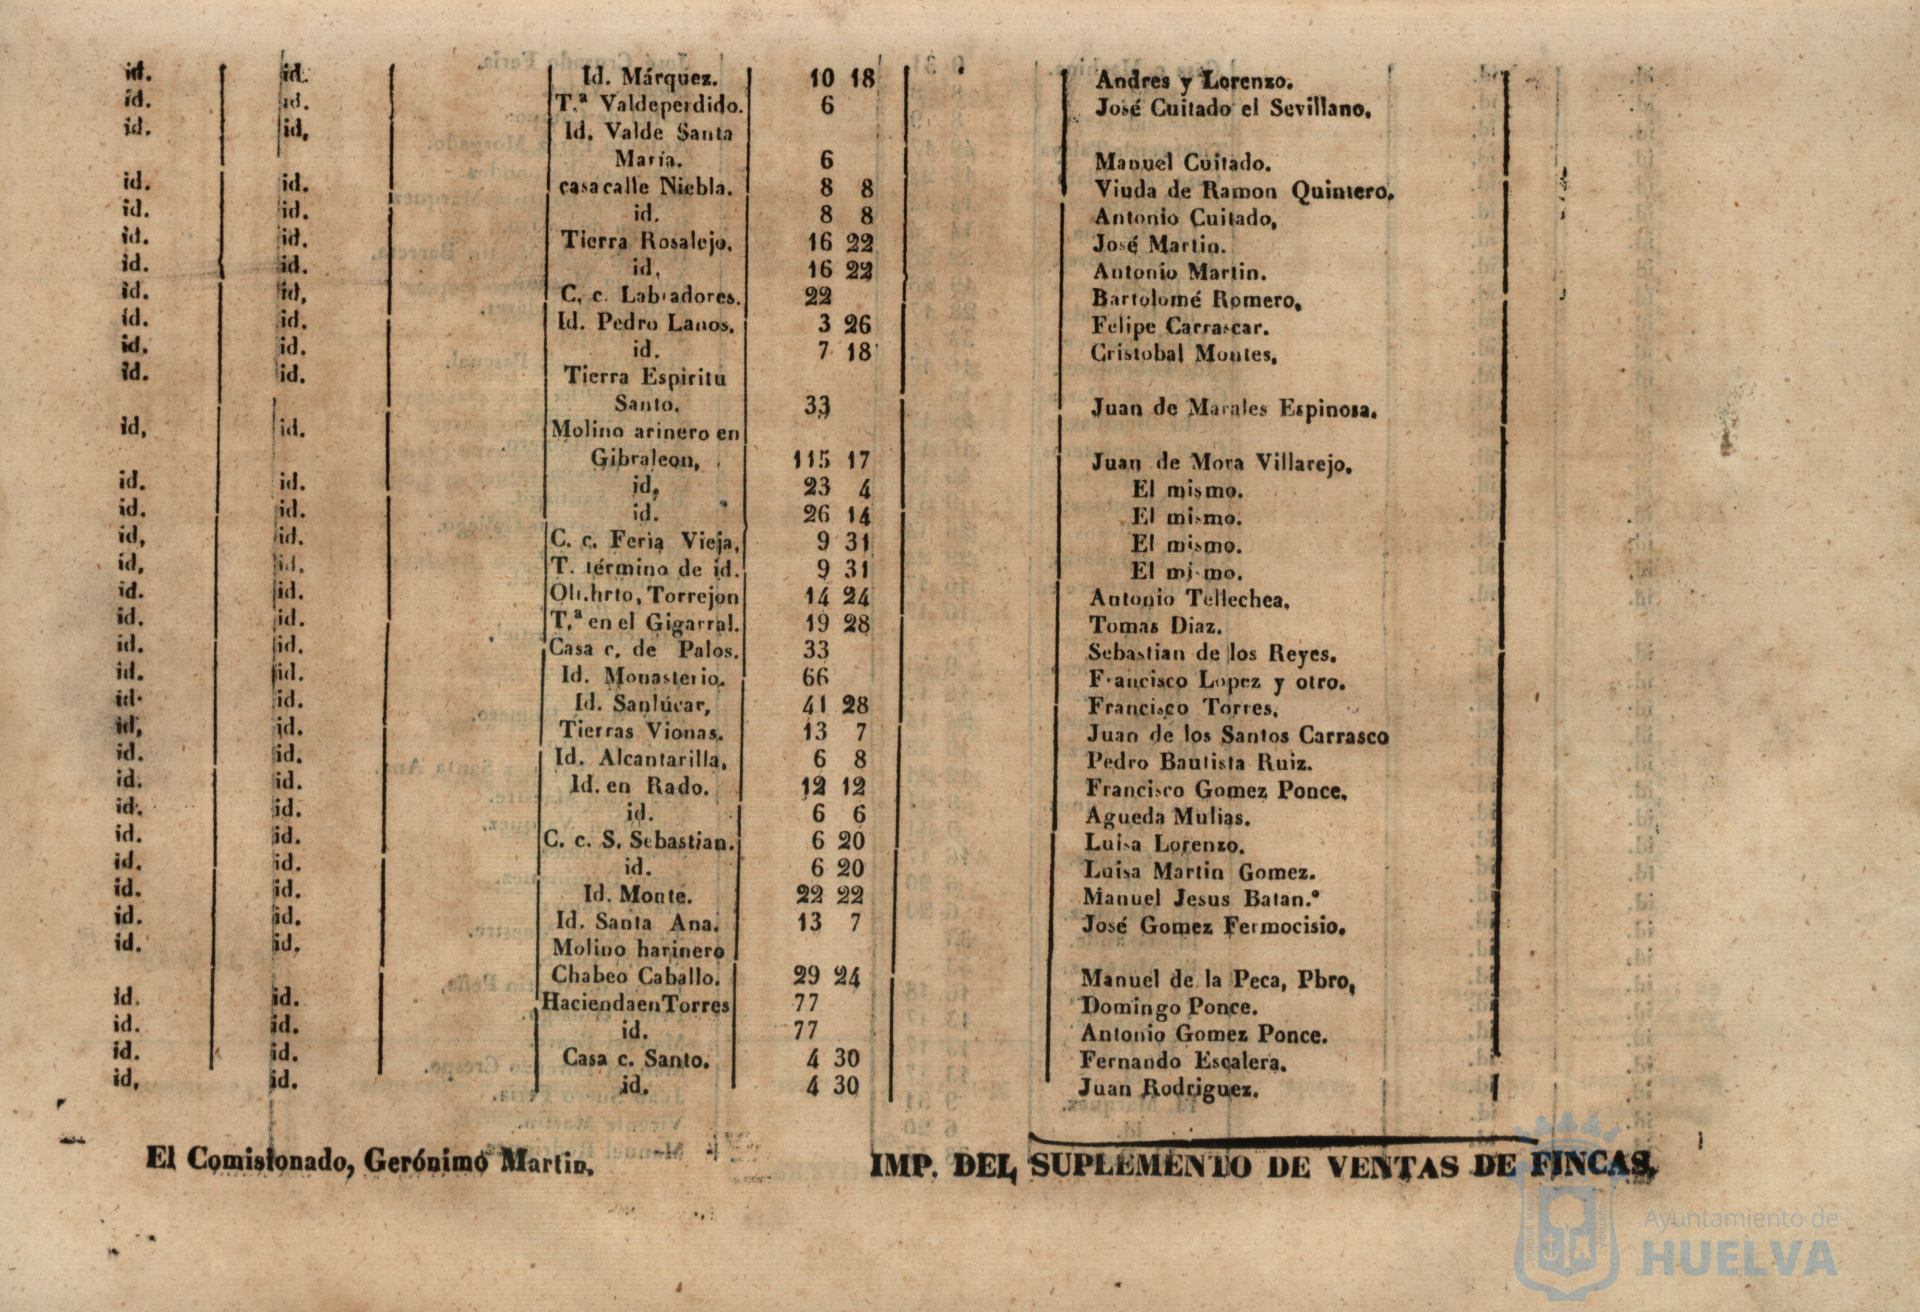 id. id. Id. Márquez. 10 18 Andres y Lorenzo.
id. id. T.ª Valdeperdido. 6 José Cuitado el Sevillano.
id. id, Id. Valde Santa
María. 6 Manuel Cuitado.
id. id. casa calle Niebla. 8 8 Viuda de Ramon Quintero.
id. id. id. 8 8 Antonio Cuitado,
id. id. Tierra Rosalejo. 16 22 José Martin.
id. id. id. 16 22 Antonio Martin.
id. id, C. c. Labradores. 22 Bartolomé Romero,
id. id. Id. Pedro Lanos. 3 26 Felipe Carrascar.
id. id. id. 7 18 Cristobal Montes,
id. id. Tierra Espiritu
Santo. 33 Juan de Marales Espinosa.
id, id. Molino arinero en
Gibraleon, 115 17 Juan de Mora Villarejo,
id. id. id, 23 4 El mismo.
id. id. id. 26 14 El mismo.
id, id. C. c. Feria Vieja, 9 31 El mismo.
id, id. T. término de id. 9 31 El mismo.
id. id. Oli.hrto, Torrejon 14 24 Antonio Tellechea,
id. id. T.ª en el Gigarral. 19 28 Tomas Diaz.
id. id. Casa c. de Palos. 33 Sebastian de los Reyes.
id. id. Id. Monasterio. 66 Francisco Lopez y otro.
id. id. Id. Sanlúcar, 41 28 Francisco Torres,
id, id. Tierras Vionas. 13 7 Juan de los Santos Carrasco
id. id. Id. Alcantarilla, 6 8 Pedro Bautista Ruiz.
id. id. Id. en Rado. 12 12 Francisco Gomez Ponce,
id. id. id. 6 6 Agueda Mulias.
id. id. C. c. S. Sebastian. 6 20 Luisa Lorenzo.
id. id. id. 6 20 Luisa Martin Gomez.
id. id. Id. Monte. 22 22 Manuel Jesus Batan.º
id. id. Id. Santa Ana. 13 7 José Gomez Fermocisio.
id. id. Molino harinero
Chabeo Caballo. 29 24 Manuel de la Peca, Pbro,
id. id. Hacienda en Torres 77 Domingo Ponce.
id. id. id. 77 Antonio Gomez Ponce.
id. id. Casa c. Santo. 4 30 Fernando Escalera.
id, id. id. 4 30 Juan Rodriguez.
El Comisionado, Gerónimo Martin.
IMP. DEL SUPLEMENTO DE VENTAS DE FINCAS.
Ayuntamiento de
HUELVA